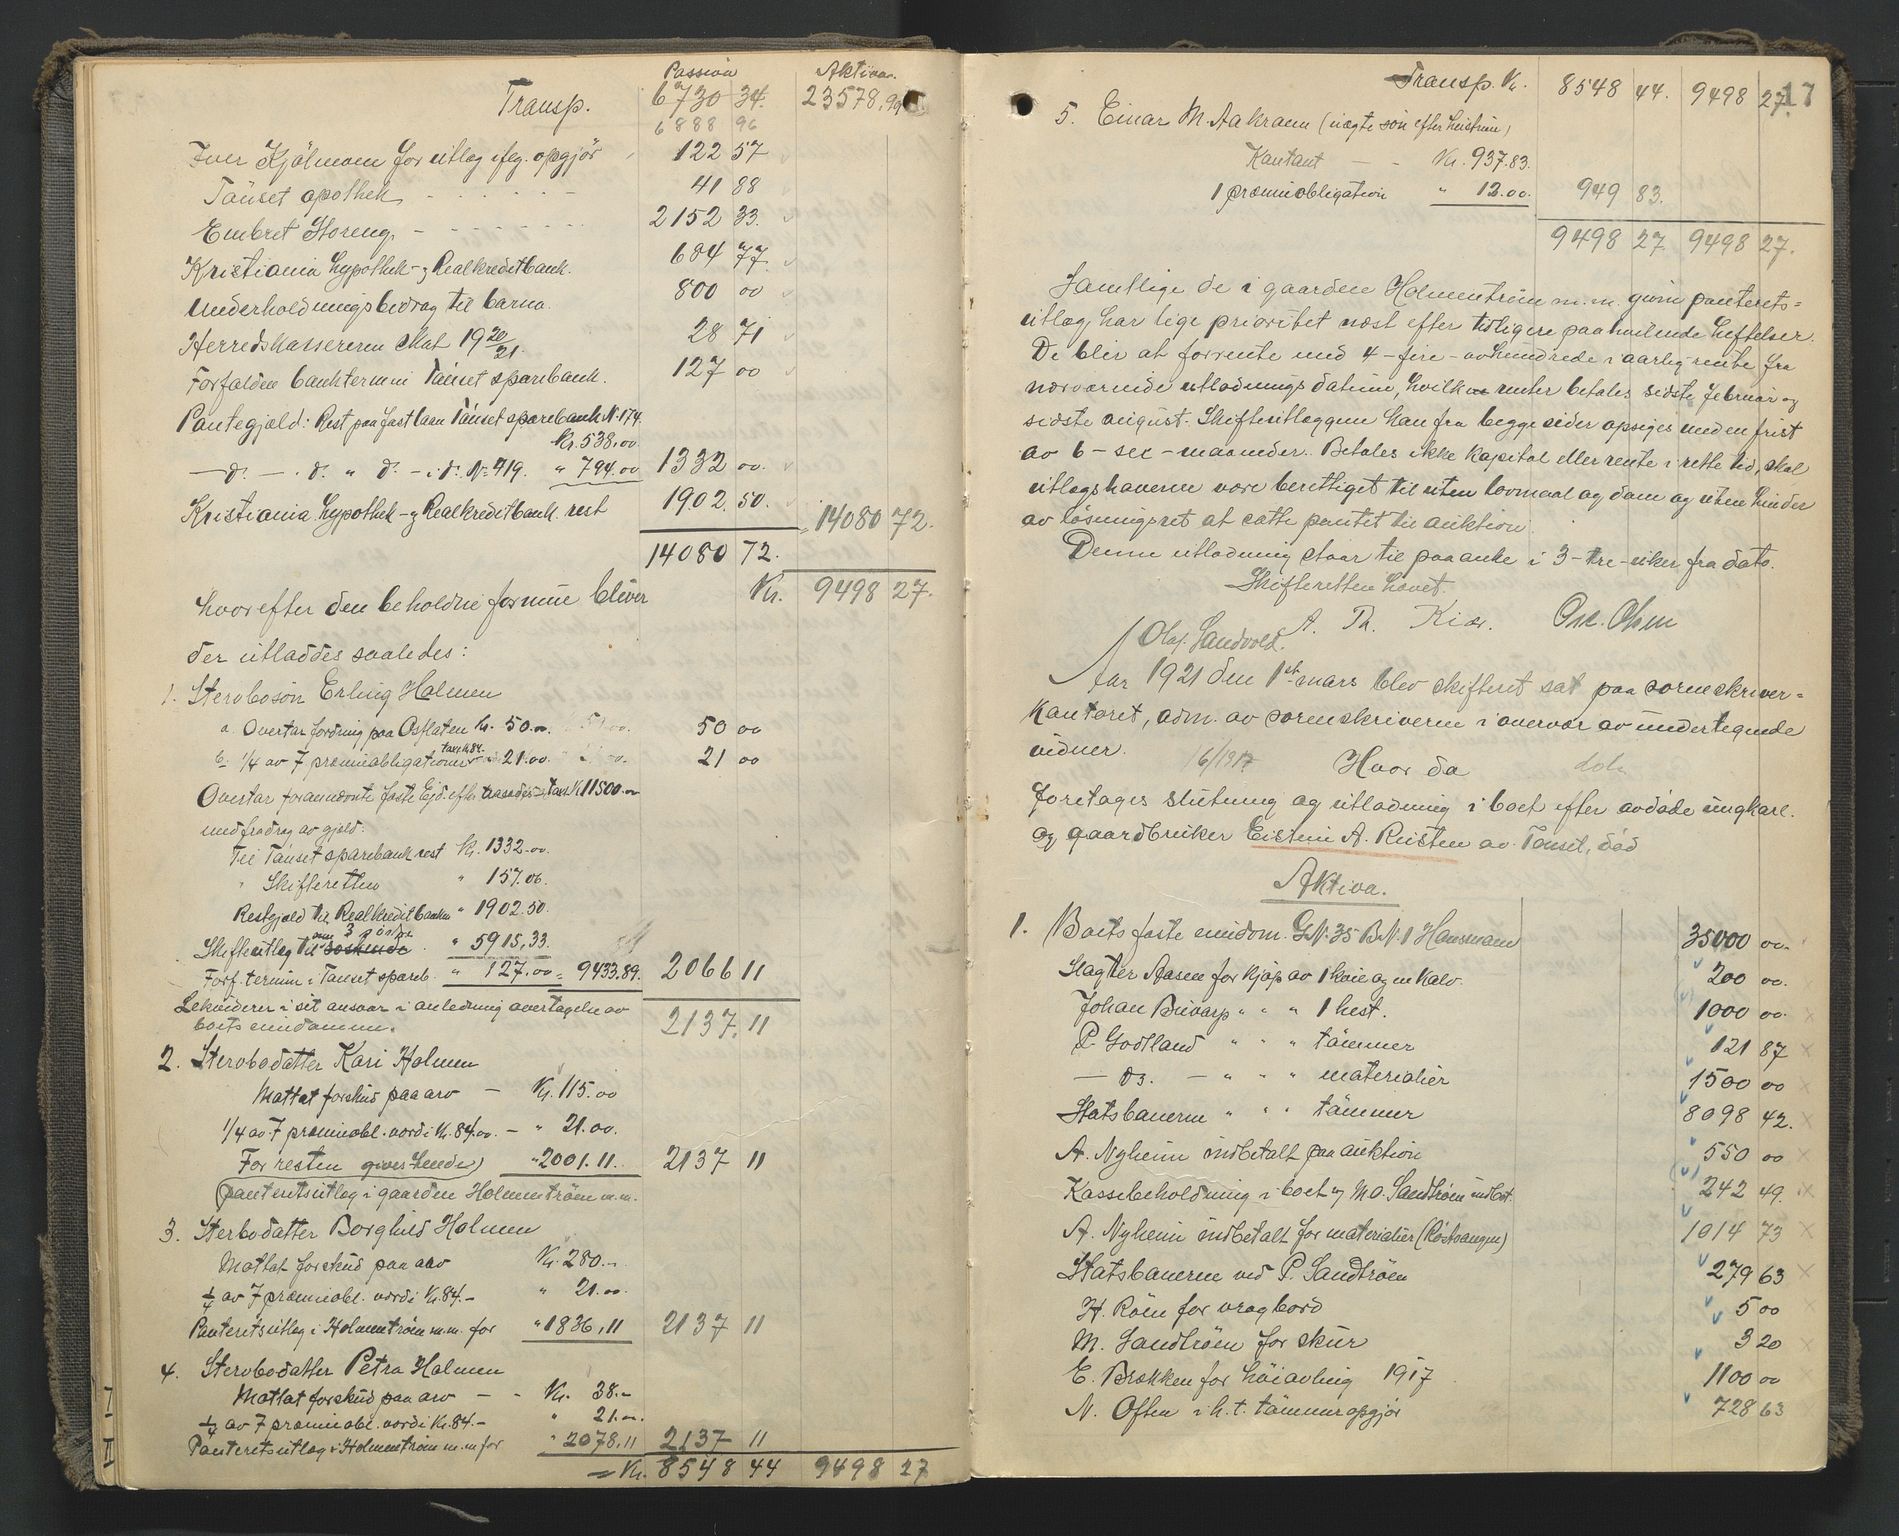 Passiva Aktiva.
Transp. 6730 34. 23578,99
6888 96
Iver Kjölmoen for utlæg iføg. opgjör 122 57
Tönset apothek 41 88
Embret Storeng. 2152 33.
Kristiania Hypothek- og Realkreditbank. 684 77.
Underholdningsbidrag til barna. 800 00
Herredskassereren skat 19 20/21. 28 71
Forfalden banktermin Tönset sparebank. 127 00
Pantegjæld: Rest paa fast laan Tönset sparebank N. 174.
Kr. 538,00
— d. — . d. " d. — i d. No 419. " 794.00 1332 00.
Kristiania Hypothek- og Realkreditbank. rest 1902. 50. 14080 72.
14080 72.
hvorefter den beholdne formue bliver Kr. 9498 27.
der utloddes saaledes:
1. Stervbosön Erling Holmen
a. Overtar fordring paa Osflaten kr. 50.00. 50 00
b. 1/4 av 7 præmieobligationer takst kr. 84. 21.00 21 00
Overtar forannævnte faste Ejd. efter takst Kr. 11500.00
med fradrag av gjæld:
Til Tönset sparebank rest Kr. 1332.00.
" Skifteretten " 157.06.
Restgjæld til Realkreditbanken " 1902.50.
Skifteutlæg til 3 söstre söskende " 5915,33.
Forf. termin i Tönset spareb. " 127.00 = 9433.89. 2066 11
Lekviderer i sit ansvar i anledning overtagelse av
boets eiendomme. 2137. 11
2. Stervbodatter Kari Holmen
Mottat forskud paa arv — Kr. 115.00
1/4 av 7 præmieobl. værdi Kr. 84.00. — " 21.00.
For resten gives hende) " 2001.11. 2137 11
(panteretsutlæg i gaarden Holmentröen m.m.
3. Stervbodatter Borghild Holmen
Mottat forskud paa arv Kr. 280.—
1/4 av 7 præmieobl. værdi Kr. 84.— " 21.00.
Panteretsutlæg i Holmentröen m.m. for " 1836,11 2137 11
4. Stervbodatter Petra Holmen
Mottat forskud paa arv — - Kr. 38.—
1/4 av 7 præmieobl. værdi Kr. 84.— " 21.00.
Panteretsutlæg i Holmentröen m.m for " 2078,11 2137 11
= Kr. 8548 44 9498 27
I
II
17
Transp. Kr. 8548 44. 9498 27.
5. Einar M. Aakrann (uægte sön efter hustruen)
Kontant — - Kr. 937.83.
1 præmieobligation " 12.00. 949 83.
9498 27 9498 27.
Samtlige de i gaarden Holmentröen m.m. givne panterets=
utlæg har lige prioritet næst efter tidligere paahvilende heftelser.
De blir at forrente med 4 - fire - av hundrede i aarlig rente fra
nærværende utlodnings datum, hvilke renter betales sidste februar og
sidste august. Skifteutlæggene kan fra begge sider opsiges med en frist
av 6 - sex - maaneder. Betales ikke kapital eller rente i rette tid, skal
utlægshaverne være berettiget til uten lovmaal og dom og uten hinder
av lösningsret at sætte pantet til auktion.
Denne utlodning staar til paaanke i 3 - tre - uker fra dato.
Skifteretten hævet.
A. Th. Kiær. Osc. Olsen
Olaf Sandvold.
Aar 1921 den 1ste mars blev skifteret sat paa sorenskriver=
kontoret, adm. av sorenskriveren i overvær av undertegnede
vidner. 16/1917 Hvor da
foretages slutning og utlodning i boet efter avdöde ungkarl.
og gaardbruker Eistein A. Reisten av Tönset, död
Aktiva.
1. Boets faste eiendom. G.N. 35 B.N. 1 Hansmoen 35000 00.
Slagter Aasen for kjöp av 1 kvie og en kalv. 200 00.
Johan Buvarp " " " 1 hest. 1000 00.
P. Godtland " " " tömmer 121 87
— Do. — " " " materialier 1500 00
Statsbanerne " " " tömmer 8098 42.
A. Nyheim indbetalt paa auktion 550 00
Kassebeholdning i boet og M. O. Sandtröen indbet. 242 49.
A. Nyheim indbetalt for materialier (Röstvangen) 1014 73
Statsbanerne ved P. Sandtröen 279 63
H. Röen for vragbord 5 00
M. Sandtröen for skur 3 20
E. Brækken for höiavling 1917 1100 00
N. Often i h.t. tömmeropgjör 728 63